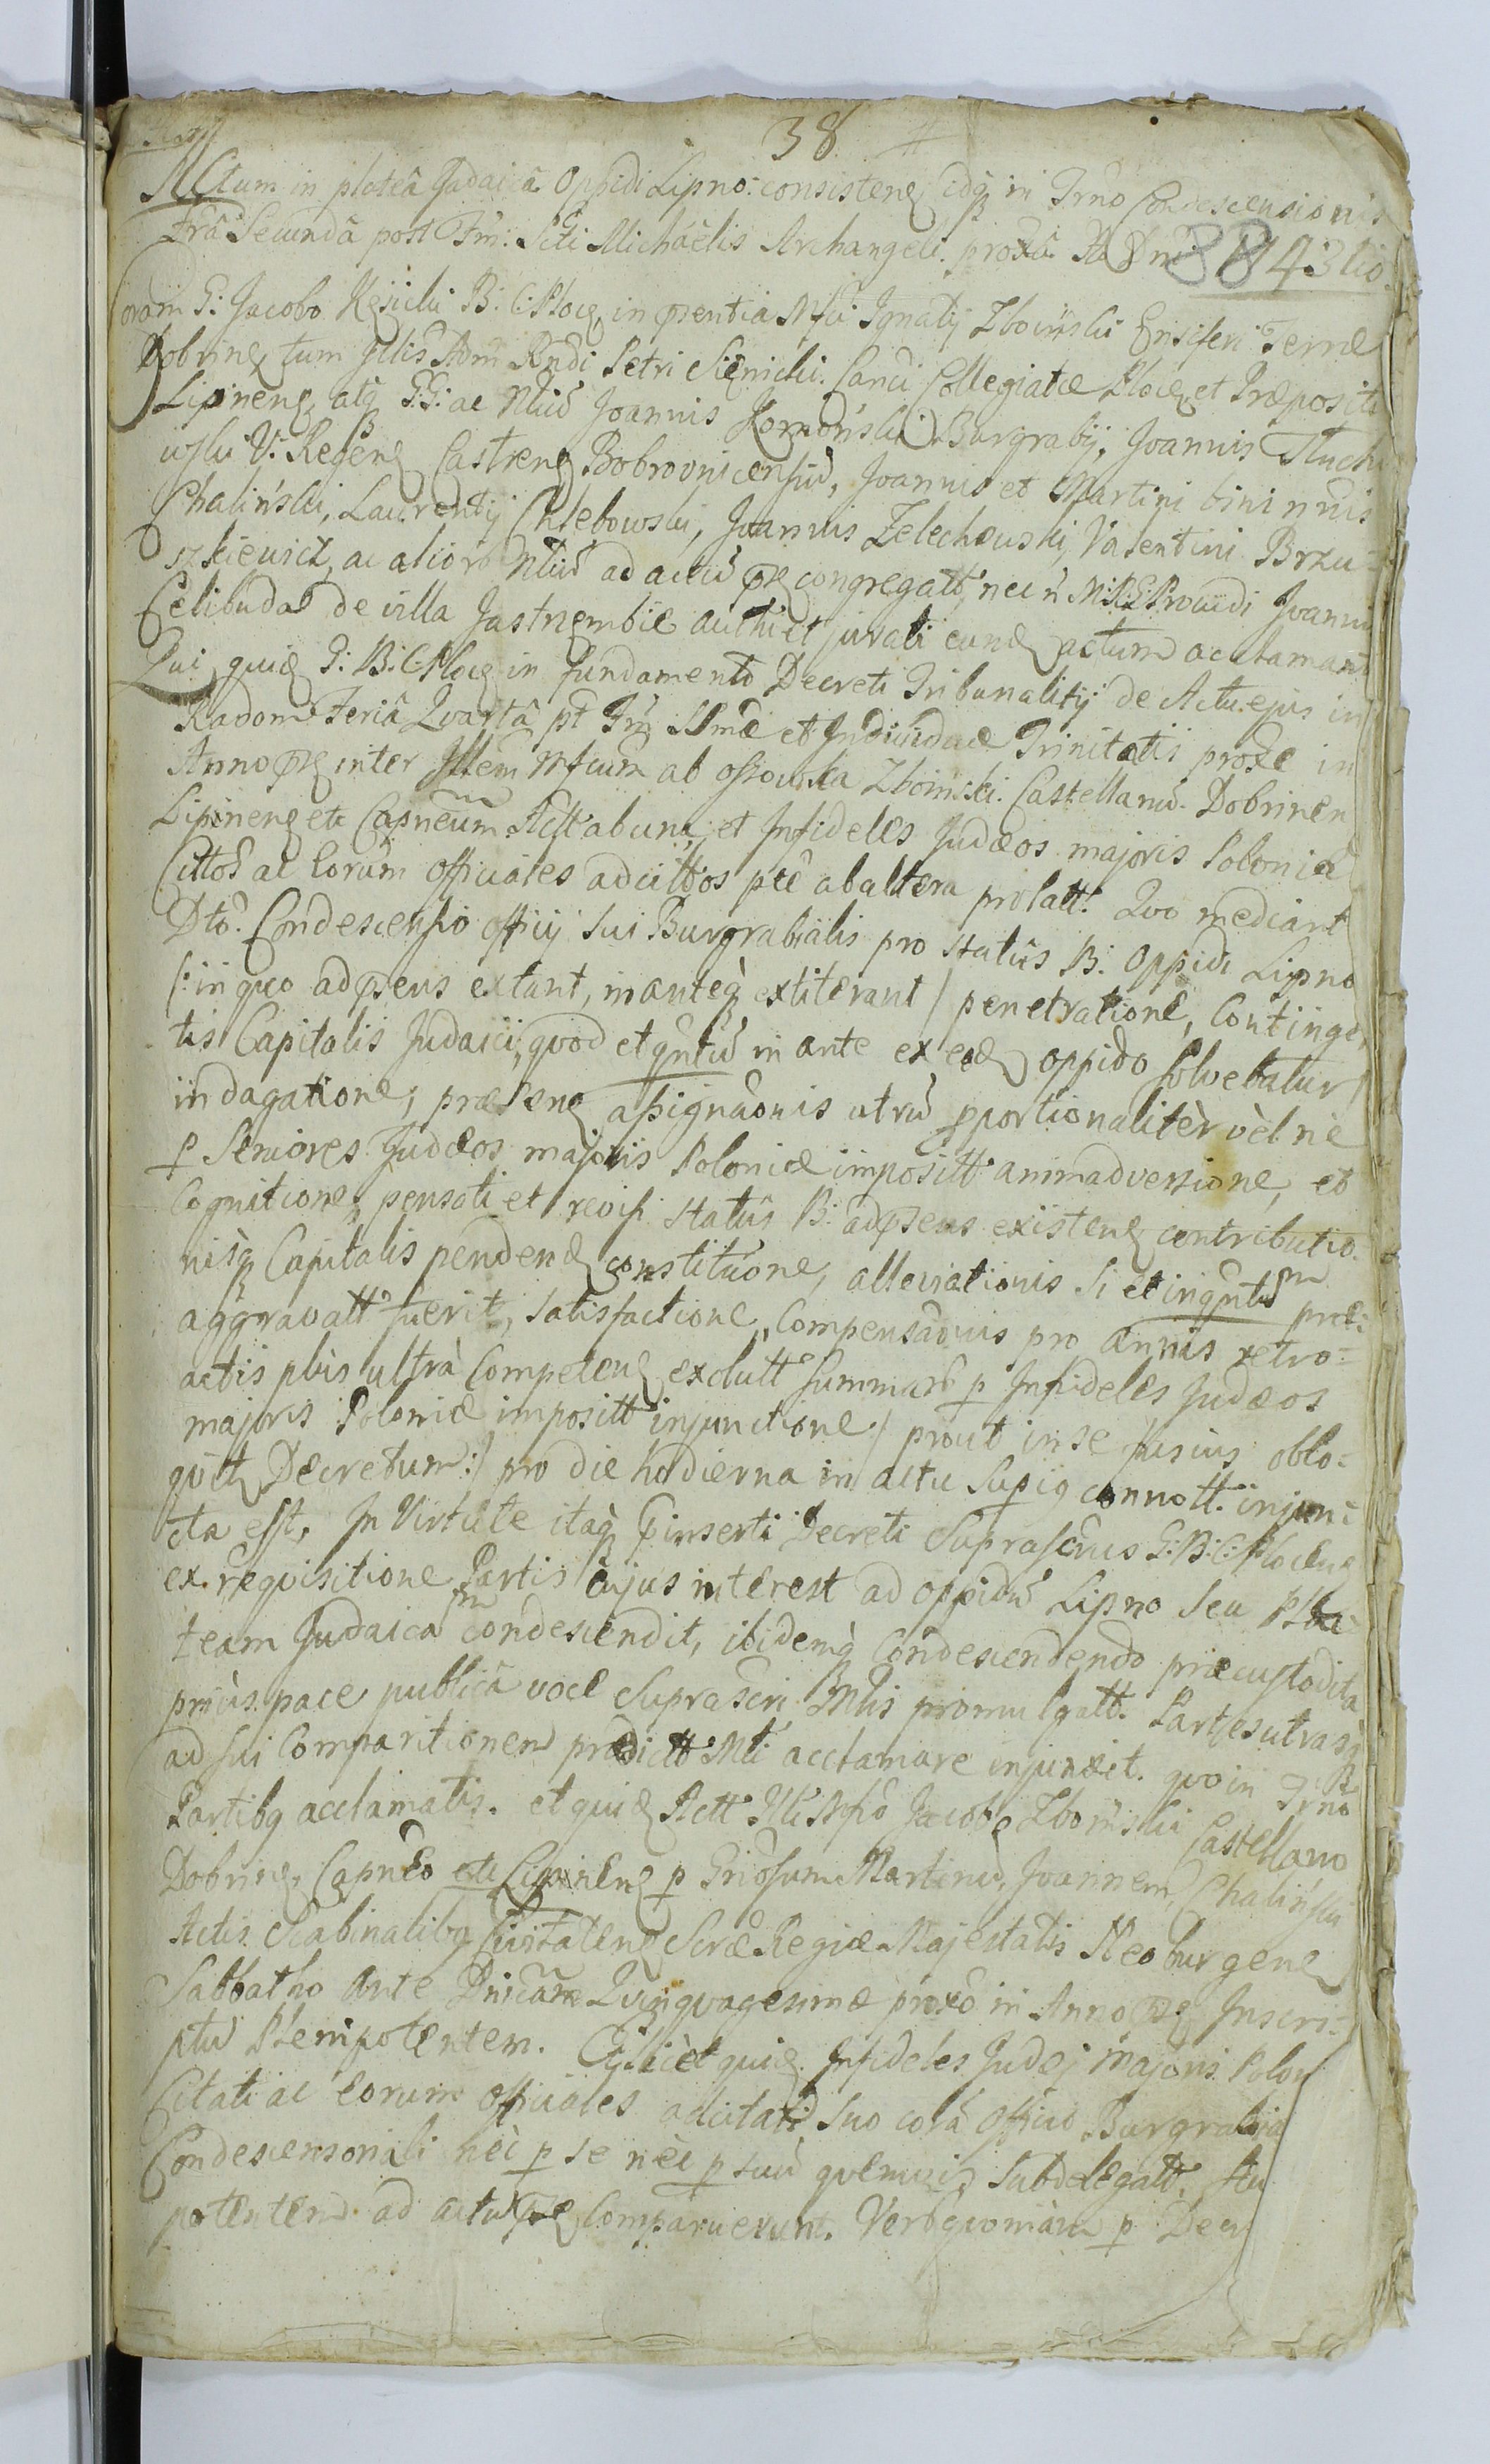 38
ACtum in plateâ Judaicâ Oppidi Lipno consisten idq in Trno Condescensionis
Frâ Secundâ post Fm: Scti Michaëlis Archangeli proxâ A Dni 1743tio
38
Coram G: Jacobo Kęsicki B: C: Ploc, in pñtia Mfci Ignatij Zboiński Ensiferi Terræ
Dobrinen tum Illis Adm Rndi Petri Sieniēcki Canci Collegiatæ Ploc et Præpositi
Lipnen, atq G:G: ac Nliũ Joannis Komoński Burgrabij, Joannis Tłuchowski
V: Regen Castren Bobrovnicensiũ, Joannis et Martini bini nnis
Chaliński, Laurentij Chlebowski, Joannis Zelechowski, Valentini Brzu-
szkiewicz, ac alioro Nliũ ad actũ pñ congregatt, nec ñ M: R: G: Providi Joannis
Celibuda de villa Jastrzembie auth et jurati eund actum acclamant
Qui quid G: B: C: Ploc in fundamento Decreti Tribunalitij de Actu ejus in
Radom Feriâ Quartâ pt Fm SSmæ et Individuæ Trinitatis proxe in
Anno pñ inter Illem Mfcum ab Ossowka Zboinski Castellanũ Dobrinen
Lipinen etc Capneum Actt ab una, et Infideles Judæos majoris Poloniæ
Cittos ac Eorum Officiales adcittos pte ab altera prolatt. Quo mediant
Dto. Condescensio officij sui Burgrabialis pro statûs B: Oppidi Lipno
(: in quo ad pñens extant, in anteq, extiterant / penetratione, Continge
tis Capitalis Judaici, quod et qntũ in ante ex eod oppido solvebatur
indagatione, præsen assignaonis utrũ pportionalitèr vèl nè
p Seniores Judæos majoris Poloniæ impositt animadversione, et
Cognitione, pensati et revisi statûs B: ad pñens existen contributio-
nisq Capitalis penden constitûone, alleviationis si et in qntũ præ:
aggravatt fuerit, satisfactione, Compensaonis pro annis retro=
actis plùs ultrà Competen exclutt summarũ p Infideles Judæos
majoris Poloniæ impositt injunctione / prout in se fusius oblo=
qvit Decretum:/ pro die hodierna in actu supiq connott. injun:
cta est, In Virtute itaq pinserti Decreti suprascrus G: B: C: Plocen
ex requisitione Partis cujus interest ad oppidũ Lipno seu Pla
team Judaicam condescendit, ibidemq Condescendendo præcustodita
priùs pace publicâ voce suprascri Mlis promulgatt. Partes utrasq
ad sui Comparitionem prædictt Mli acclamare injunxit. quo in Trno
Partibq acclamatis. et quid Actt Illi Mfco Jacobo Zboiński Castellano
Dobrin, Capneo etc Lipinen p Gnosum Martinũ, Joannem Chaliński
Actis Scabinalibq Civitaten Sacræ Regiæ Majestatis Neoburgen
Sabbatho ante Dnicam Quinquagesimæ proxo in Anno pñ Inscri-
ptũ Plenipotentem. Citt: et quid Infideles Judej majoris Polon
Citati ac eorum Officiales adcitati suo corã Officio Burgrabia
Condescensoriali nèc p se nèc p suũ quemvis subdelegatt. seu
potentem ad actũ pñ Comparuerunt. Verò quoniàm p Decr